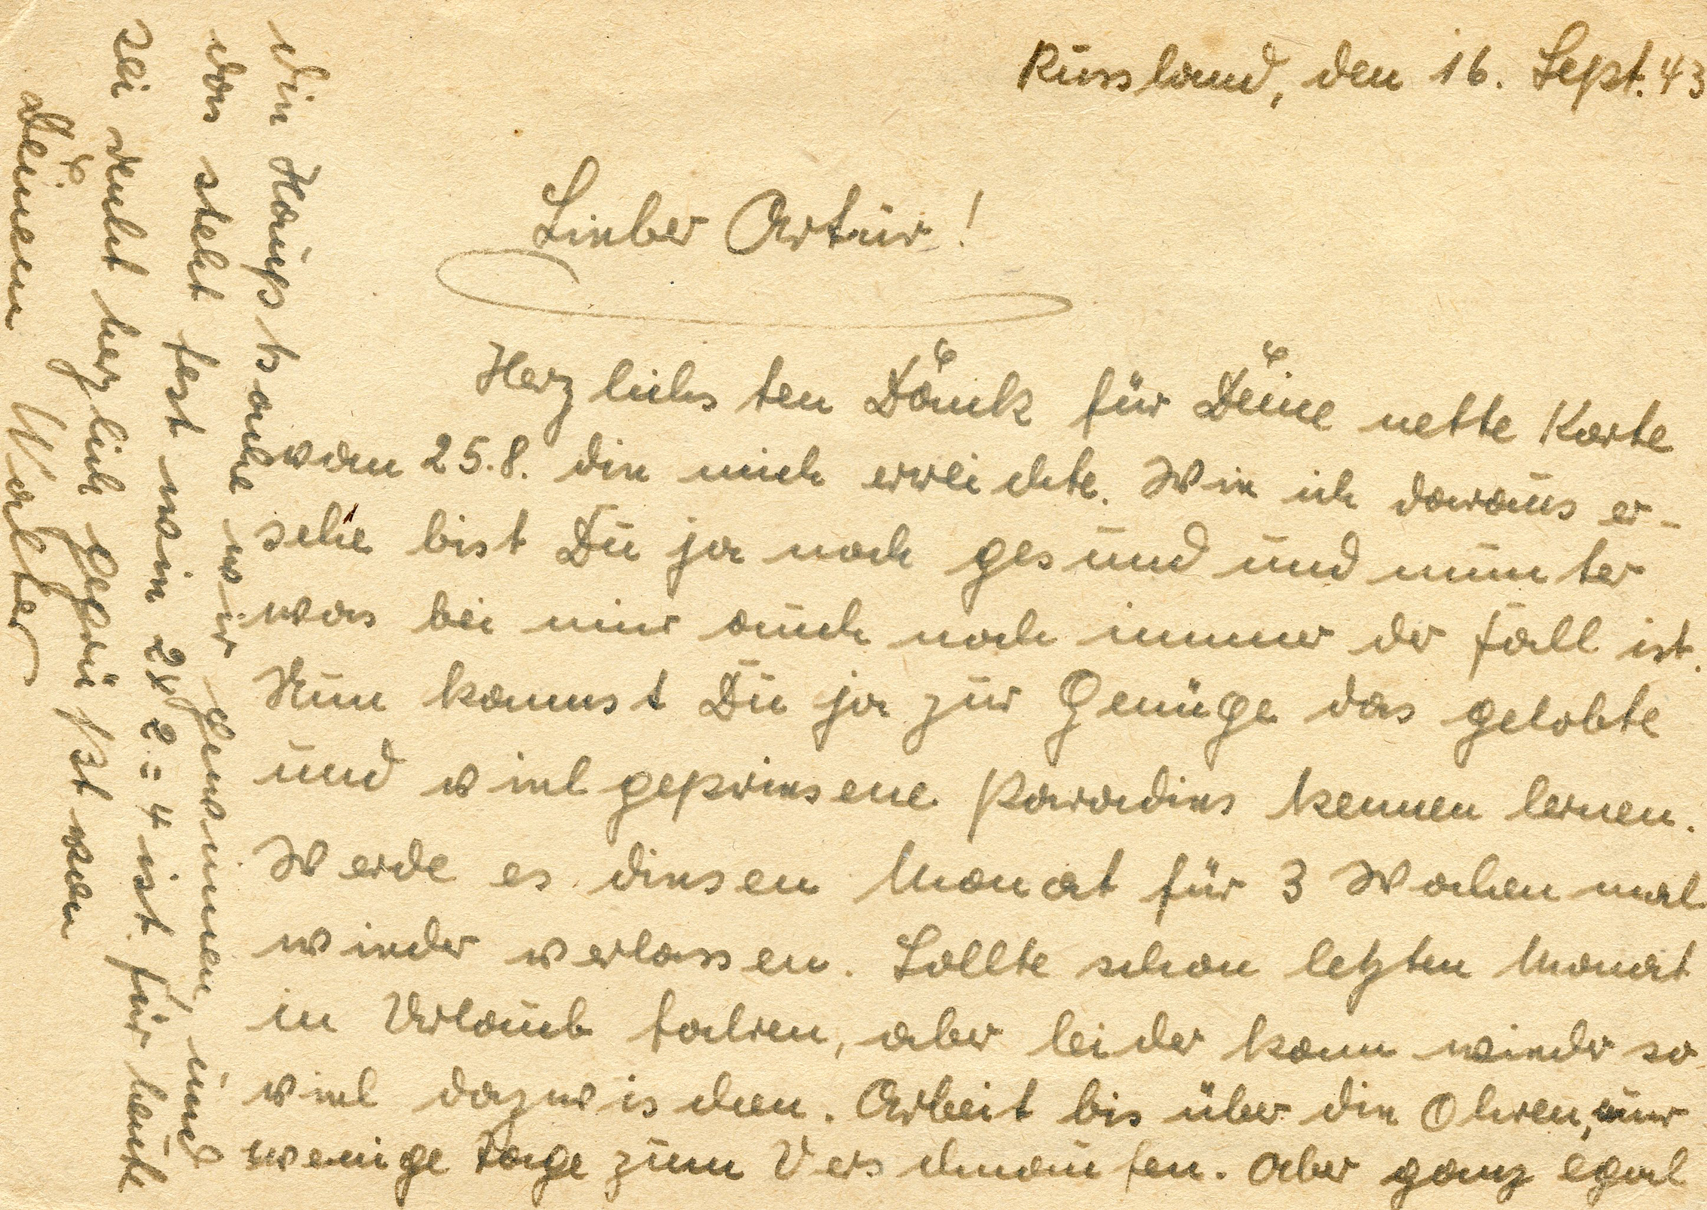 Russland, den 16. Sept. 43
Lieber Artur!
Herzlichsten Dank für Deine nette Karte
vom 25.8. die mich erreichte. Wie ich daraus er-
sehe bist Du ja noch gesund und munter
was bei mir auch noch immer der fall ist.
Nun kannst Du ja zur Genüge das gelobte
und viel gepriesene Paradies kennen lernen.
Werde es diesen Monat für 3 Wochen mal
wieder verlassen. Sollte schon letzten Monat
in Urlaub fahren, aber leider kam wieder so
viel dazwischen. Arbeit bis über die Ohren, nur
wenige Tage zum Verschnaufen. Aber ganz egal
die Hauptsache wir gewinnen, und
das steht fest wie 2x2=4 ist. für heute
sei recht herzlich gegrüßt von
deinem Walter